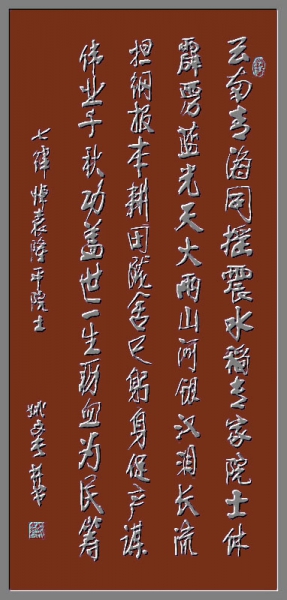 云南青海同摇震水稻专家院士休
霹雳蓝光天大雨山河银汉泪长流
担纲报本耕田陇舍己躬身促产谋
伟业千秋功盖世一生沥血为民筹
七律悼袁隆平院士
姚文